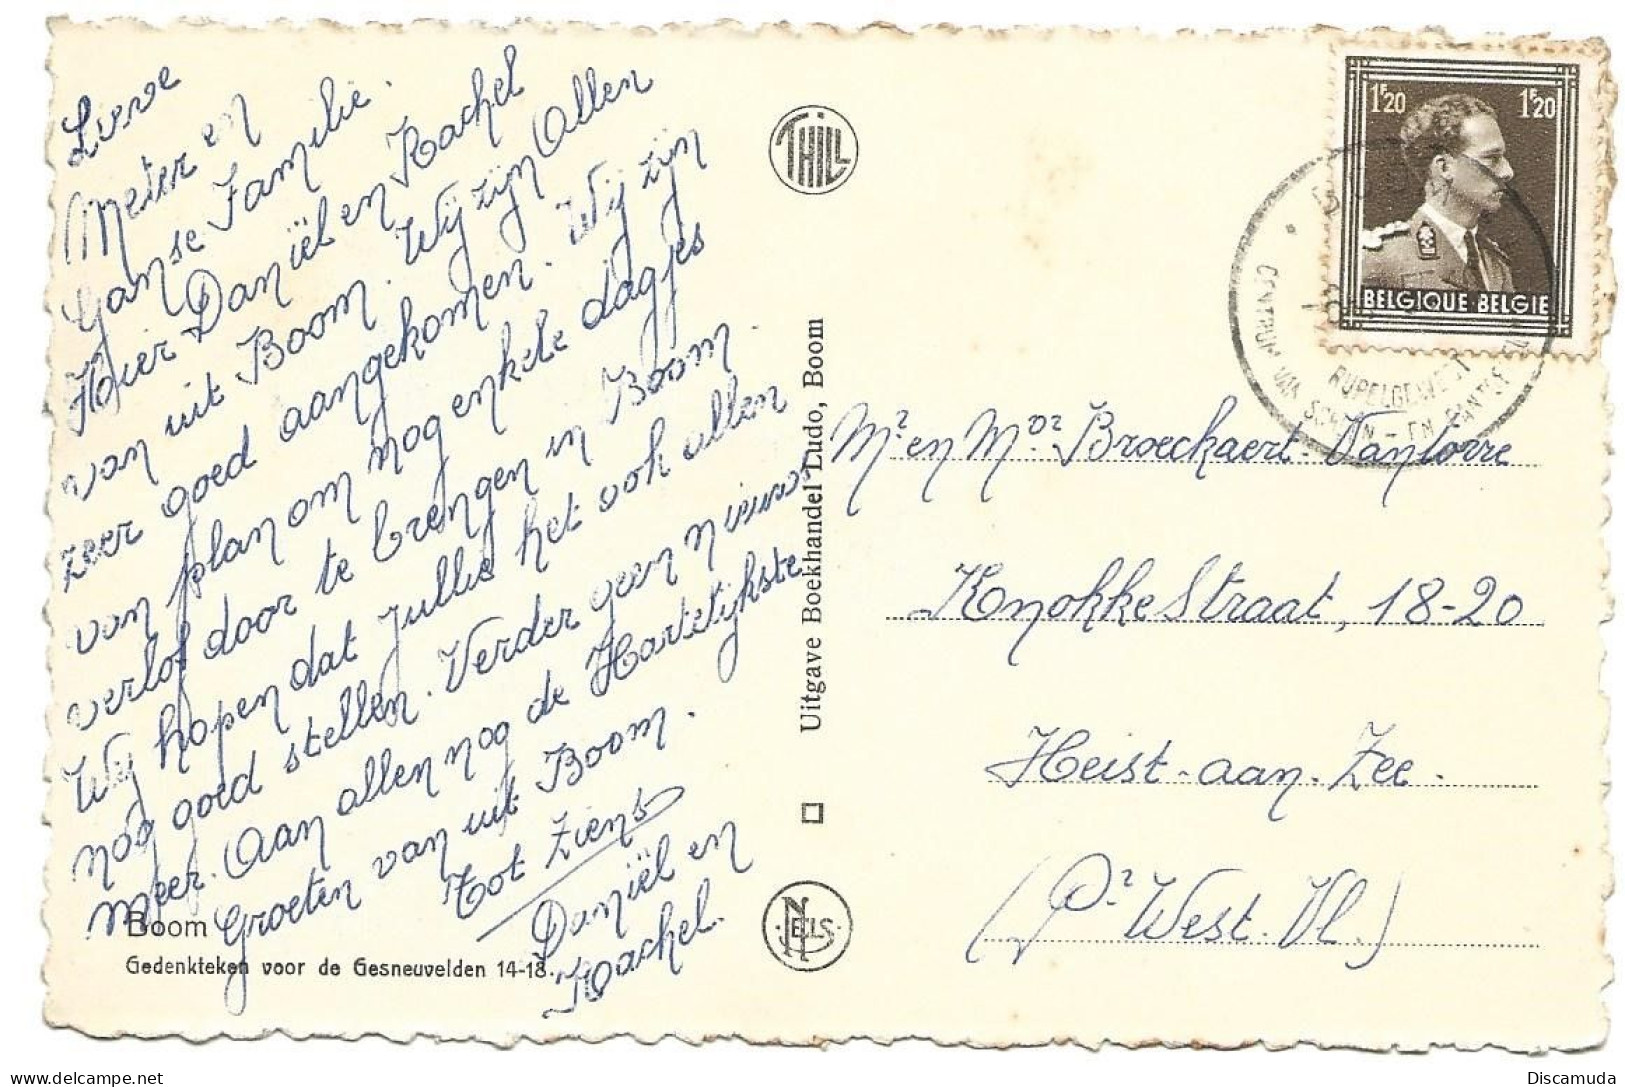 Lieve
Meter en
Ganse Familie.
Hier Daniël en Rachel
van uit Boom. Wij zijn Allen
zeer goed aangekomen. Wij zijn
van plan om nog enkele dagjes
verlof door te brengen in Boom.
Wij hopen dat jullie het ook allen
nog goed stellen. Verder geen nieuws
meer. Aan allen nog de Hartelijkste
Groeten van uit Boom.
Tot Ziens
Daniël en
Rachel.
Boom
Gedenkteken voor de Gesneuvelden 14-18.
THILL
Uitgave Boekhandel Ludo, Boom
NELS
1F20 1F20
BELGIQUE·BELGIE
BOOM
RUPELGEWEST
CENTRUM VAN SCHOEN - EN
Mr en Mdr Broeckaert-Vantorre
Knokkestraat, 18-20
Heist-aan-Zee.
(Pr West. Vl.)
delcampe.net
Discamuda